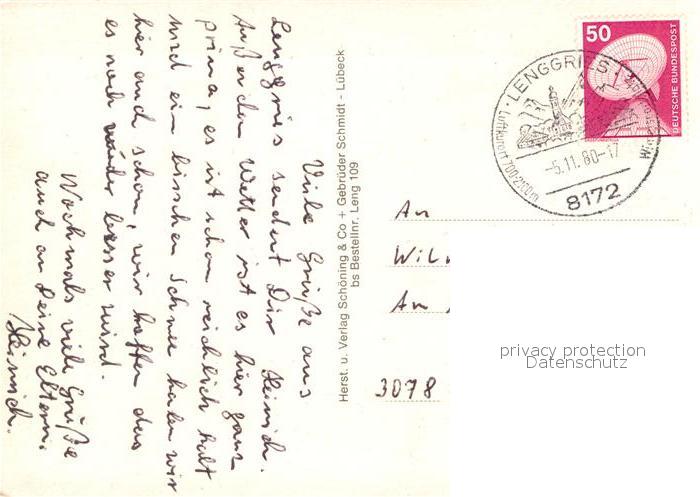 Viele Grüße aus
Lenggries sendet Dir Heinrich.
Außer dem Wetter ist es hier ganz
prima, es ist schon reichlich kalt
und ein bisschen Schnee haben wir
hier auch schon, wir hoffen das
es noch wieder besser wird.
Nochmals viele Grüße
auch an Deine Eltern.
Heinrich.
Herst. u. Verlag Schöning & Co + Gebrüder Schmidt - Lübeck
bs Bestellnr. Leng 109
50
DEUTSCHE BUNDESPOST
LENGGRIES
Luftkurort 700-2000m
-5.11.80-17
8172
An
Am
3078
privacy protection
Datenschutz